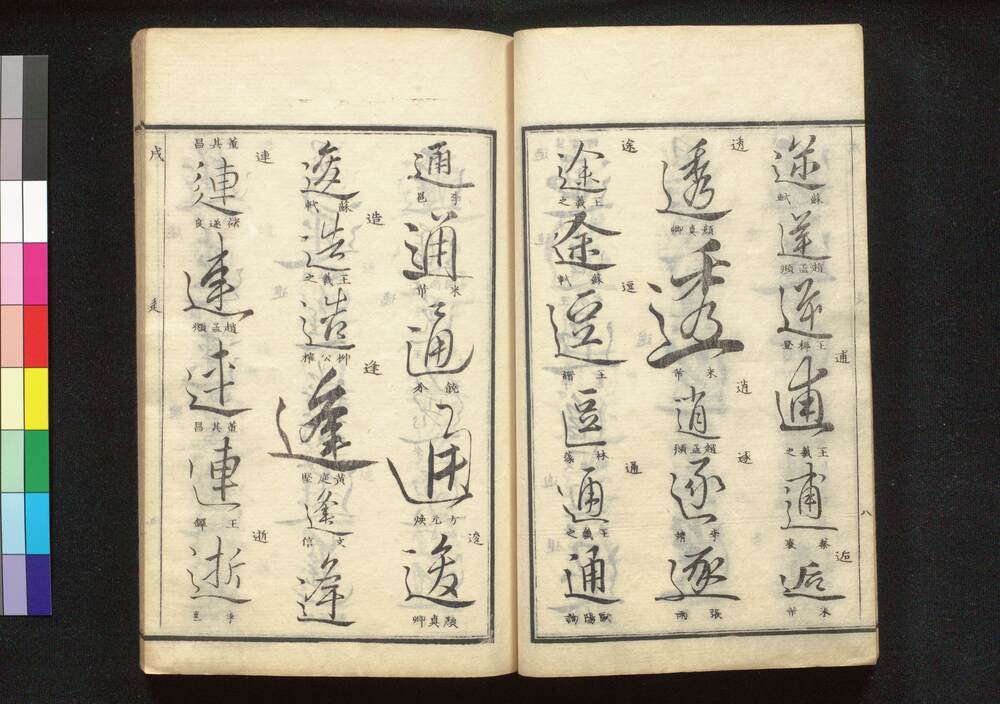 逆
蘇軾
逆
趙孟頫
逆
王穉登
逋
逋
王羲之
逋
蔡襄
逅
逅
米芾
透
透
顏真卿
透
米芾
逍
逍
趙孟頫
逐
逐
李靖
逐
張雨
途
途
王羲之
途
蘇軾
逗
逗
王縉
逗
林藻
通
通
王羲之
通
歐陽詢
八
通
李邕
通
米芾
通
饒介
通
方元煥
逡
逡
顏真卿
逡
蘇軾
造
造
王羲之
造
柳公權
逢
逢
黃庭堅
逢
文信
逢
董其昌
連
連
褚遂良
連
趙孟頫
連
董其昌
連
王鐸
逝
逝
李邕
戌
辵